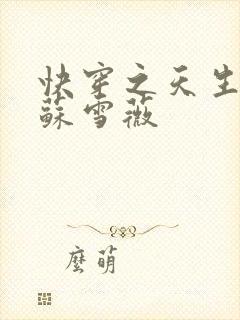 快穿之天生
蘇雪薇
麼萌